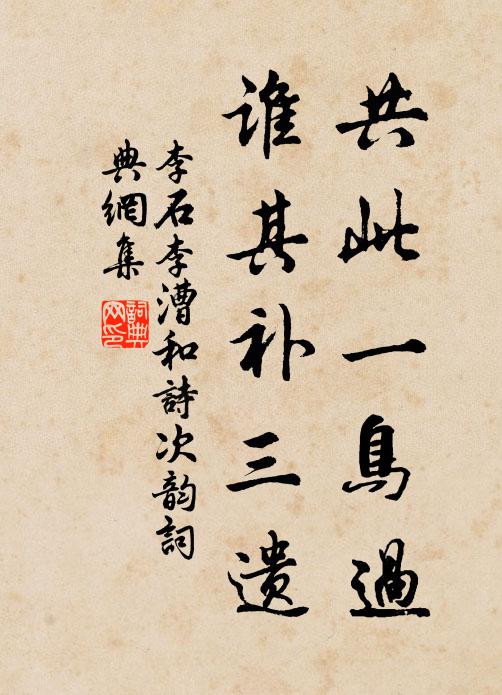 共此一鳥過
谁其补三遗
李石李漕和詩次韵詞
典網集
詞典網印